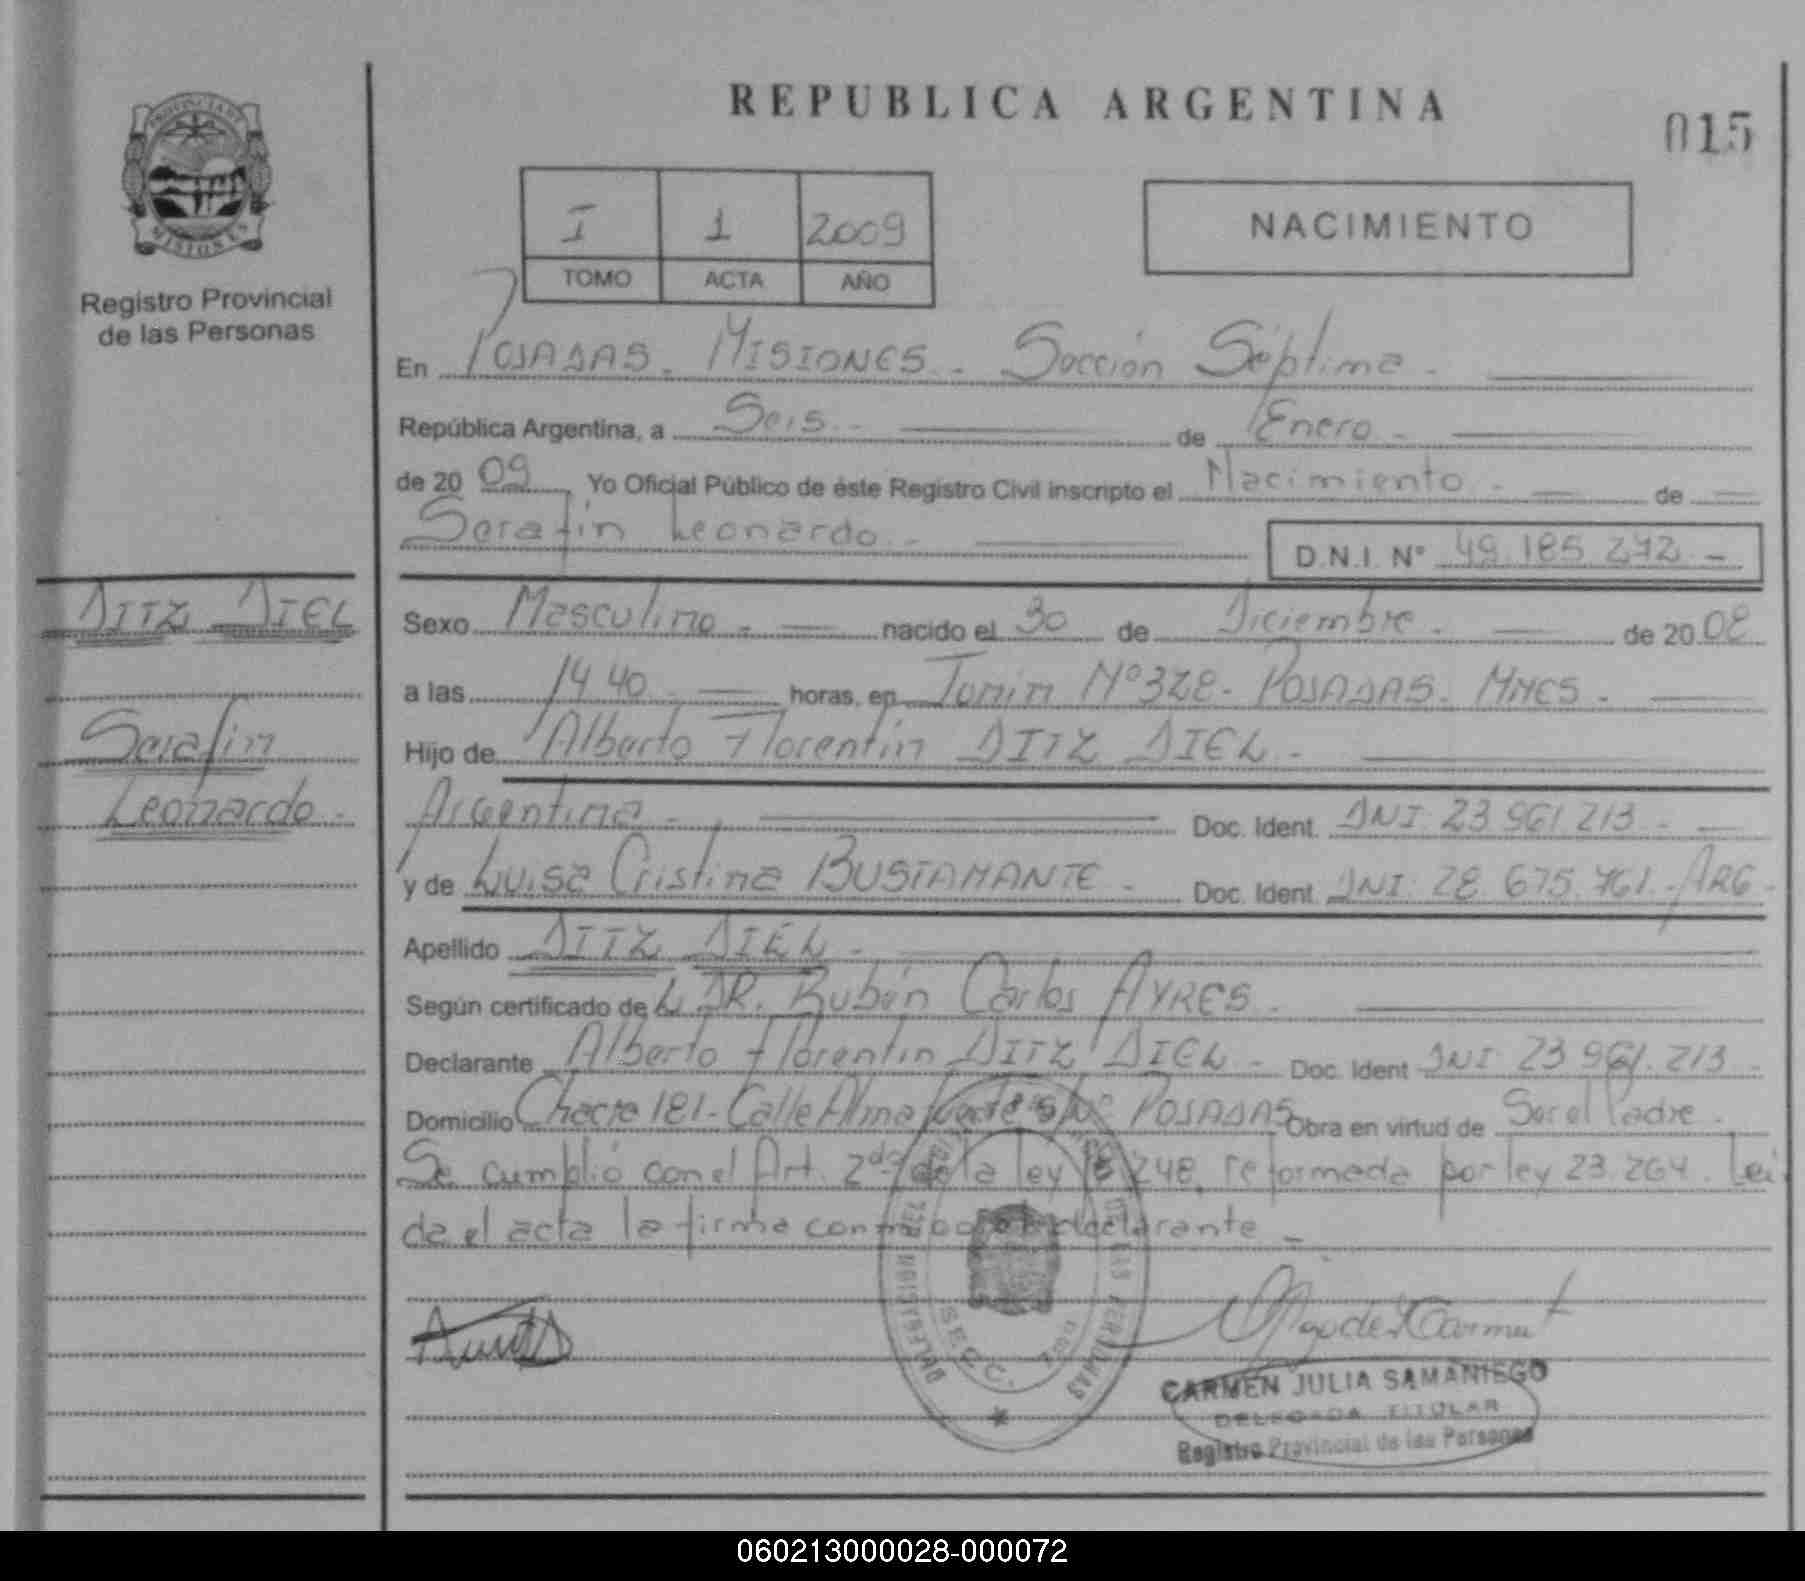 REPUBLICA ARGENTINA
015
PROVINCIA DE
MISIONES
Registro Provincial
de las Personas
I 1 2009
TOMO ACTA AÑO
NACIMIENTO
En POSADAS - MISIONES - Sección Séptima -
República Argentina, a Seis - de Enero -
de 20 09 Yo Oficial Público de éste Registro Civil inscripto el Nacimiento - de
Serafin Leonardo - D.N.I. Nº 49.185.272 -
DITZ DIEL
Serafin
Leonardo -
Sexo Masculino - nacido el 30 de Diciembre - de 20 08
a las 14 40 - horas, en Junin Nº 328 - POSADAS - MNES -
Hijo de Alberto Florentin DITZ DIEL -
Argentina - Doc. Ident. DNI 23 961 213 -
y de Luisa Cristina BUSTAMANTE - Doc. Ident. DNI: 28.675.761 - ARG -
Apellido DITZ DIEL -
Según certificado de L DR. Rubén Carlos AYRES -
Declarante Alberto Florentin DITZ DIEL - Doc. Ident DNI 23 961.213 -
Domicilio Chacra 181 - Calle Almafuerte s/Nº POSADAS Obra en virtud de Ser el Padre -
Se cumplió con el Art. 2do de la ley 18.248, reformada por ley 23.264. Lei
da el acta la firma conmigo el declarante -
SECC.
CARMEN JULIA SAMANIEGO
DELEGADA TITULAR
Registro Provincial de las Personas
060213000028-000072